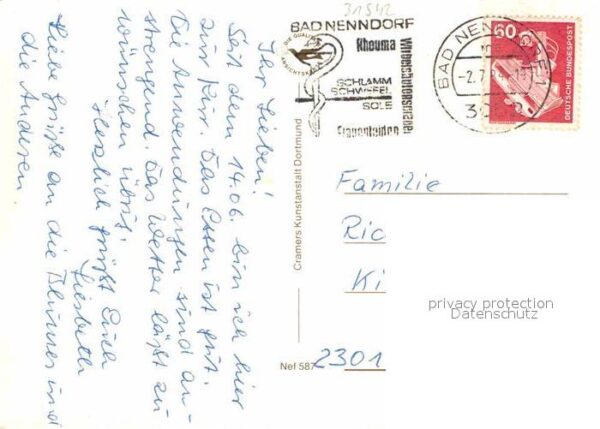 31542
BAD NENNDORF
Rheuma
Wirbelsäulensyndrom
SCHLAMM
SCHWEFEL
SOLE
Frauenleiden
BAD NENNDORF 1
-2.7.84
60
DEUTSCHE BUNDESPOST
Ihr Lieben!
Seit dem 14.06. bin ich hier
zur Kur. Das Essen ist gut.
Die Anwendungen sind an-
strengend. Das Wetter läßt zu
wünschen übrig.
Herzlich grüßt Euch
Liesbeth
Liebe Grüße an die Blumes und
die Anderen
Cramers Kunstanstalt Dortmund
Nef 587
Familie
Ric
Ki
2301
privacy protection
Datenschutz